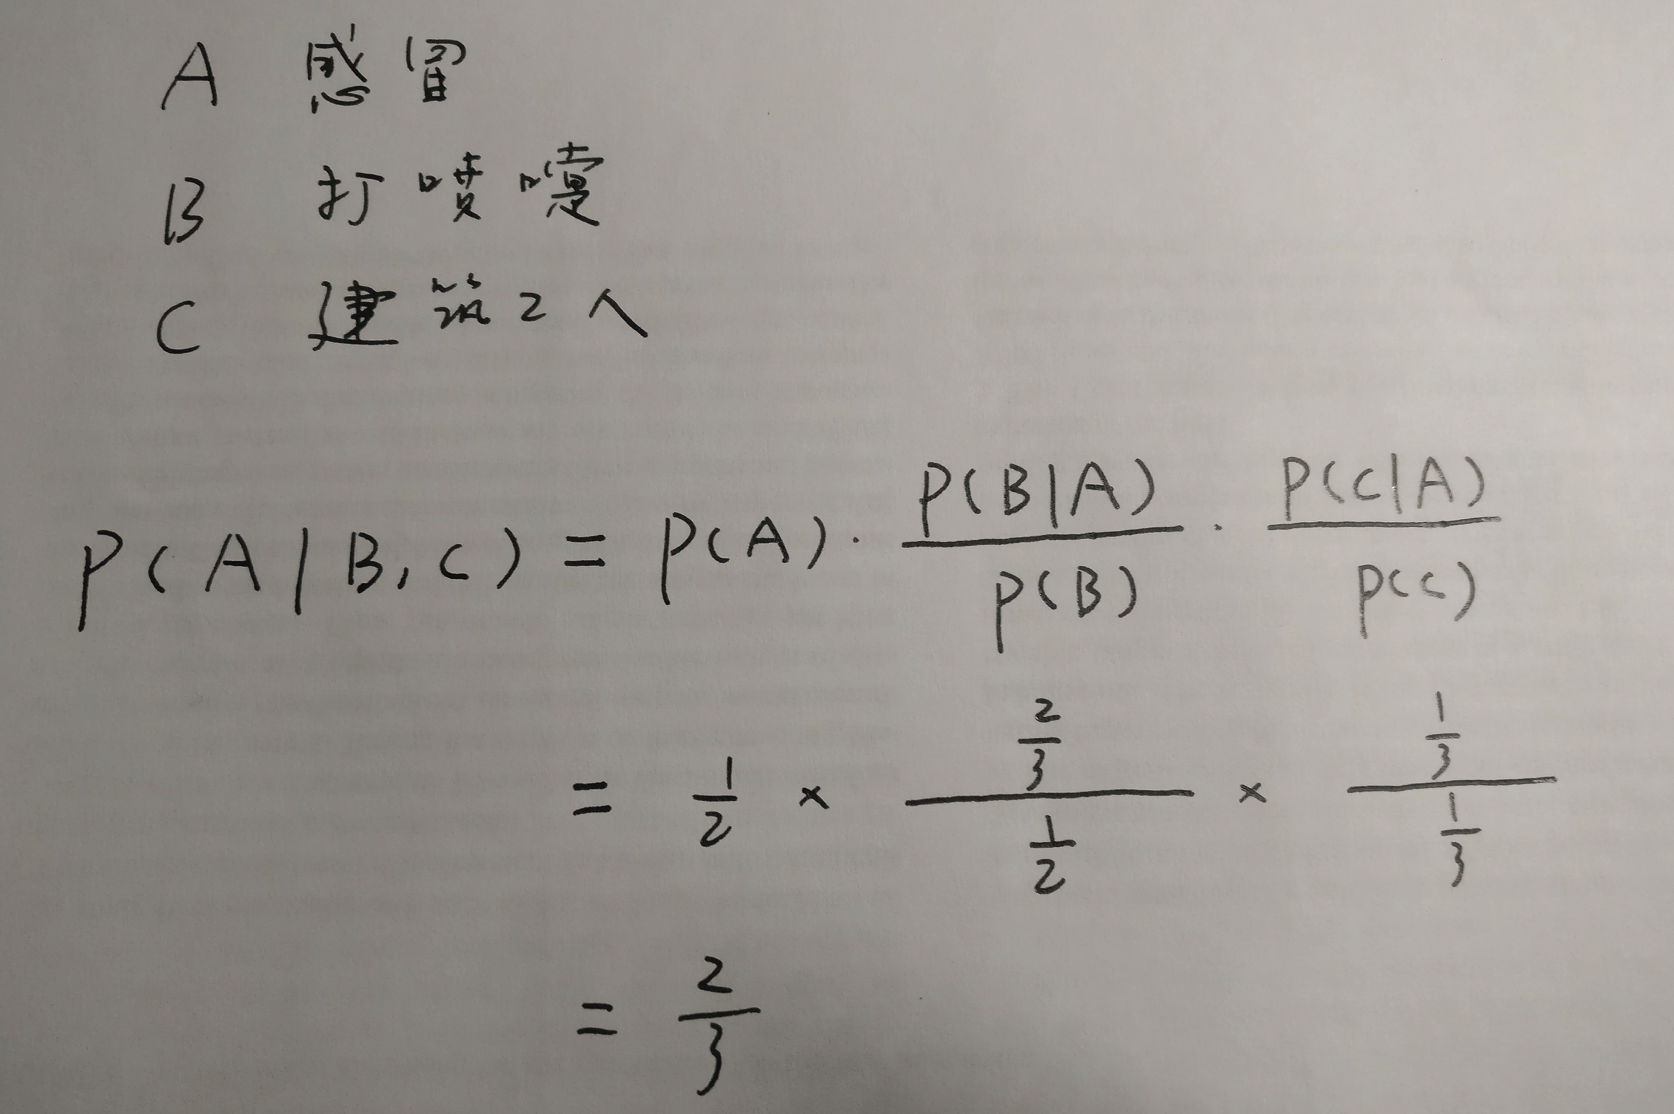 A 感冒
B 打喷嚏
C 建筑工人
P(A|B,C) = P(A) · P(B|A)/P(B) · P(C|A)/P(C)
= 1/2 × (2/3)/(1/2) × (1/3)/(1/3)
= 2/3